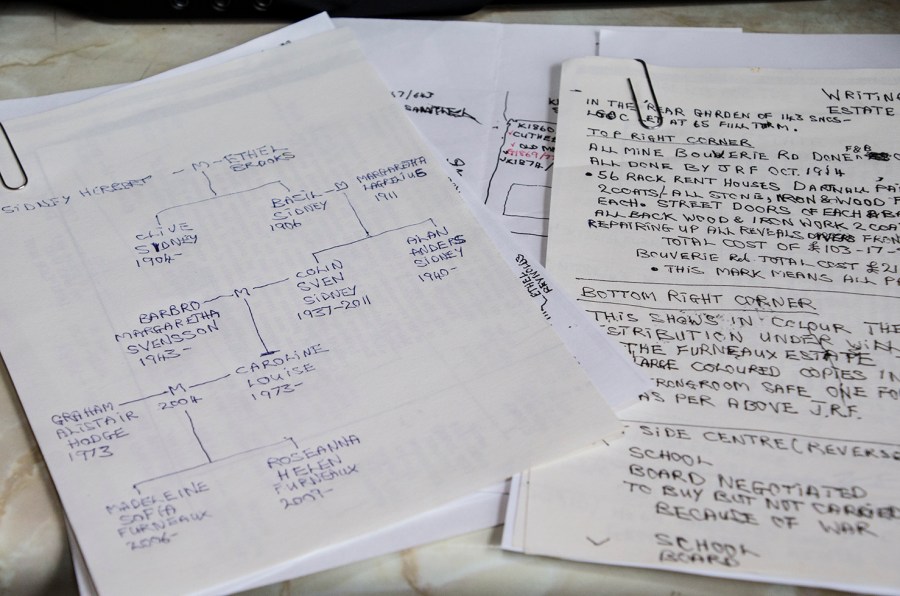 SIDNEY HERBERT -M- ETHEL
BROOKS
CLIVE
SIDNEY
1904-
BASIL
SIDNEY
1906
M
MARGARETHA
LAGRELIUS
1911
COLIN
SVEN
SIDNEY
1937-2011
ALAN
ANDERS
SIDNEY
1940-
BARBRO
MARGARETHA
SVENSSON
1943-
M
CAROLINE
LOUISE
1973-
GRAHAM
ALISTAIR
HODGE
1973
M
2004
MADELEINE
SOFIA
FURNEAUX
2006-
ROSEANNA
HELEN
FURNEAUX
K1860
CUTHE
OLD M
K1869/7
K1874/
ETHEL
WRITING
ESTATE
IN THE REAR GARDEN OF 143
LET AT 65 FULL TERM.
TOP RIGHT CORNER
F&B
ALL MINE BOUVERIE RD DONE
ALL DONE BY J.R.F OCT. 1914
• 56 RACK RENT HOUSES DARTNALL PAI
2 COATS/ALL STONE, IRON & WOOD F
EACH. STREET DOORS OF EACH & BA
ALL BACK WOOD & IRON WORK 2 COA
REPAIRING UP ALL REVEALS FRON
TOTAL COST OF £103-17-
BOUVERIE Rd. TOTAL COST £21
• THIS MARK MEANS ALL PA
BOTTOM RIGHT CORNER
THIS SHOWS IN COLOUR THE
STRIBUTION UNDER WIN
THE FURNEAUX ESTATE
LARGE COLOURED COPIES IN
TRONGROOM SAFE ONE FO
AS PER ABOVE J.R.F.
SIDE CENTRE (REVERS
SCHOOL
BOARD NEGOTIATED
TO BUY BUT NOT CARRIED
BECAUSE OF WAR
SCHOOL
BOARD